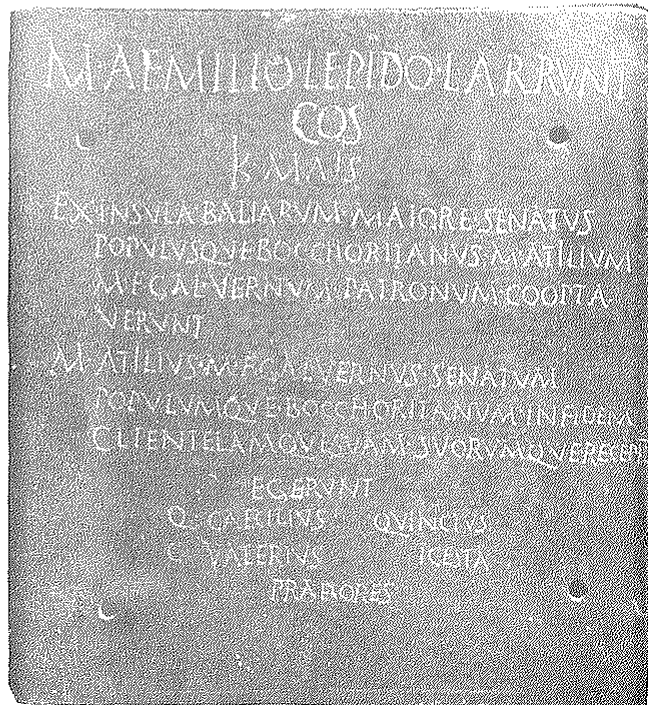 M·AEMILIO·LEPIDO·L·ARRVNT
COS
K·MAIS
EX·INSVLA·BALIARVM·MAIORE·SENATVS
POPVLVSQVE·BOCCHORITANVS·M·ATILIVM
M·F·GAL·VERNVM·PATRONVM·COOPTA
VERVNT
M·ATILIVS·M·F·GAL·VERNVS·SENATVM
POPVLVMQVE·BOCCHORITANVM·IN·FIDEM
CLIENTELAMQVE·SVAM·SVORVMQVE·RECEPIT
EGERVNT
Q·CAECILIVS QVINCTVS
C·VALERIVS ICESTA
PRAETORES